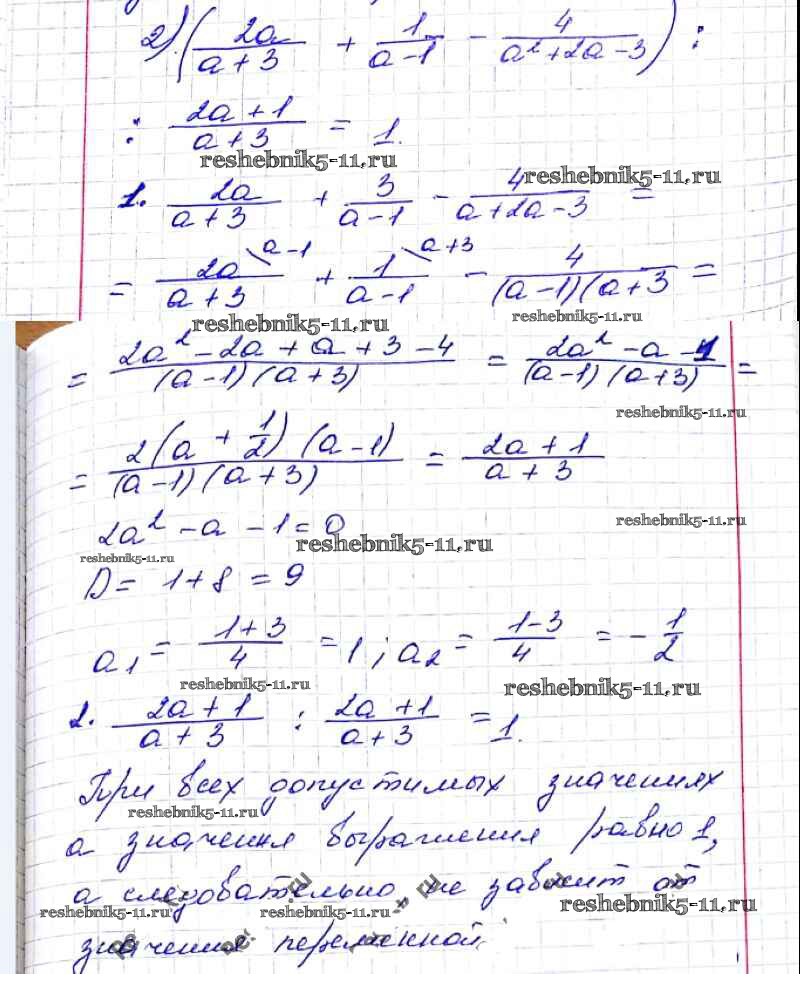 2) (2a/(a+3) + 1/(a-1) - 4/(a²+2a-3)) :
: (2a+1)/(a+3) = 1.
reshebnik5-11.ru
reshebnik5-11.ru
1. 2a/(a+3) + 3/(a-1) - 4/(a+2a-3) =
= 2a\a-1/(a+3) + 1\a+3/(a-1) - 4/((a-1)(a+3) =
reshebnik5-11.ru
reshebnik5-11.ru
= (2a²-2a+a+3-4)/((a-1)(a+3)) = (2a²-a-1)/((a-1)(a+3)) =
reshebnik5-11.ru
= 2(a+1/2)(a-1)/((a-1)(a+3)) = (2a+1)/(a+3)
2a²-a-1=0
reshebnik5-11.ru
reshebnik5-11.ru
reshebnik5-11.ru
D= 1+8 = 9
a₁ = (1+3)/4 = 1; a₂ = (1-3)/4 = -1/2
reshebnik5-11.ru
reshebnik5-11.ru
2. (2a+1)/(a+3) : (2a+1)/(a+3) = 1.
При всех допустимых значениях
reshebnik5-11.ru
а значения выражения равно 1,
а следовательно не зависит от
reshebnik5-11.ru
reshebnik5-11.ru
reshebnik5-11.ru
значения переменной.